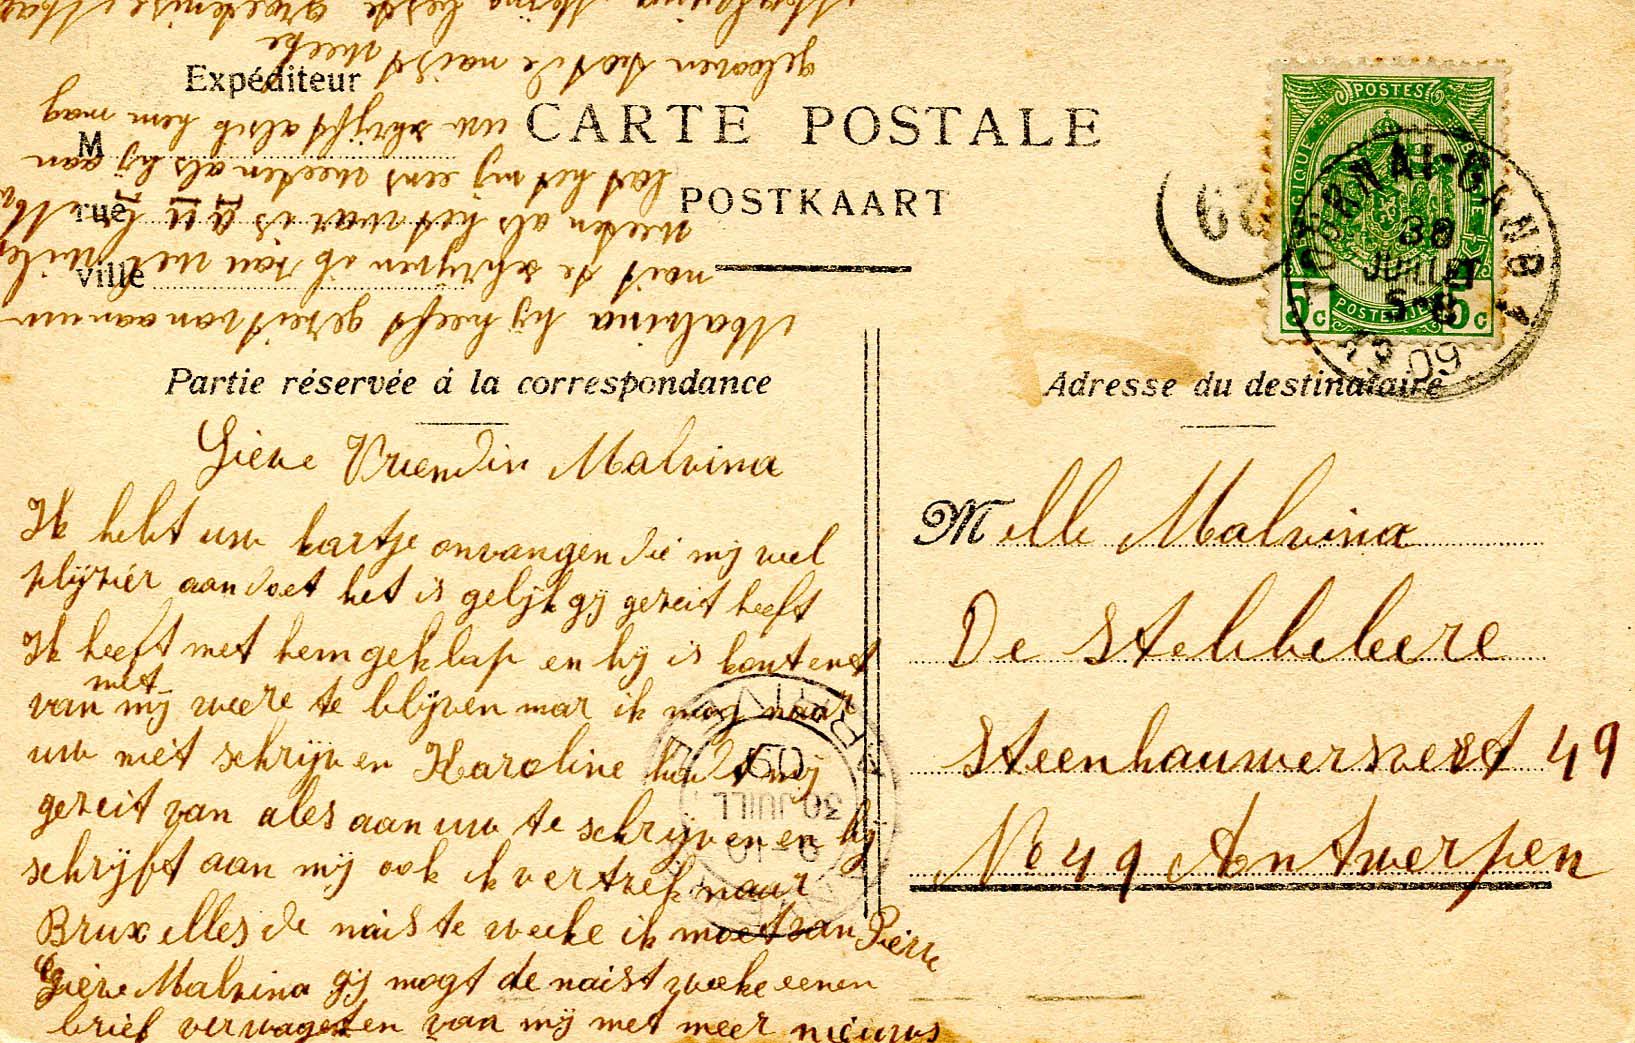 Expéditeur
M
rue
ville
CARTE POSTALE
POSTKAART
POSTES
BELGIQUE
5 c 5 c
POSTERIJEN
TOURNAI
30
JUILLET
09
Partie réservée á la correspondance
Adresse du destinataire
Lieve Vriendin Malvina
Ik hebt uw kartje onvangen die mij veel
plijzier aandoet het is gelijk gij gezeit heeft
Ik heeft met hem geklap en hij is kontent
van met mij weere te blijven mar ik mag naar
uw niet schrijven Karoline hadt mij
gezeit van ales aan uw te schrijven en hij
schrijft aan mij ook ik vertrek naar
Bruxelles de naiste weeke ik moet van Pierre
Lieve Malvina gij mogt de naist zweeke eenen
brief verwagten van mij met meer nieuws
Malvina hij heeft gezeit van aan uw
noit te schrijven of kan wel
weeten als het waar is
laat het mij eens weeten als hij aan
uw schrijft alsch hem mag
gelooven tot de naist weeke
Melle Malvina
De Stebbeleere
Steenhauwersvest 49
No 49 Antwerpen
30 JUILL
09